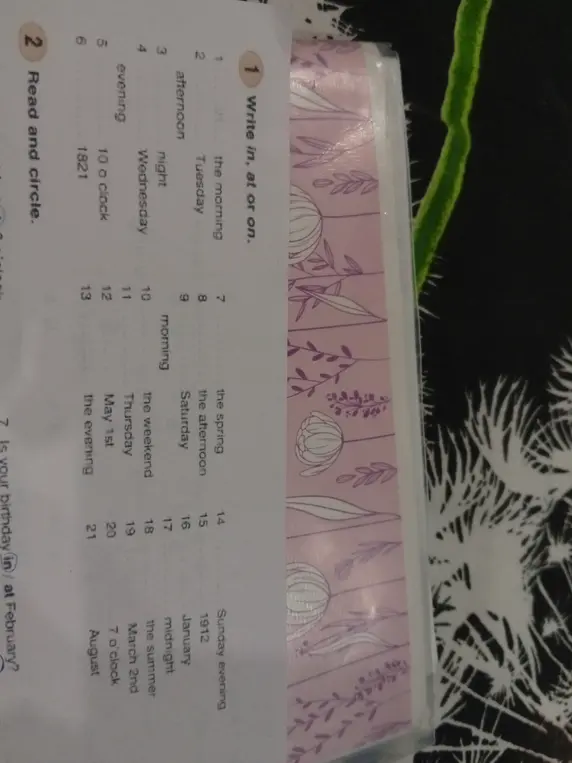 1 Write in, at or on.
1 the morning
2 Tuesday
afternoon
3 night
4 Wednesday
evening
5 10 o'clock
6 1821
7 the spring
8 the afternoon
9 Saturday
morning
10 the weekend
11 Thursday
12 May 1st
13 the evening
14 Sunday evening
15 1912
16 January
17 midnight
18 the summer
19 March 2nd
20 7 o'clock
21 August
2 Read and circle.
7 Is your birthday in / at February?